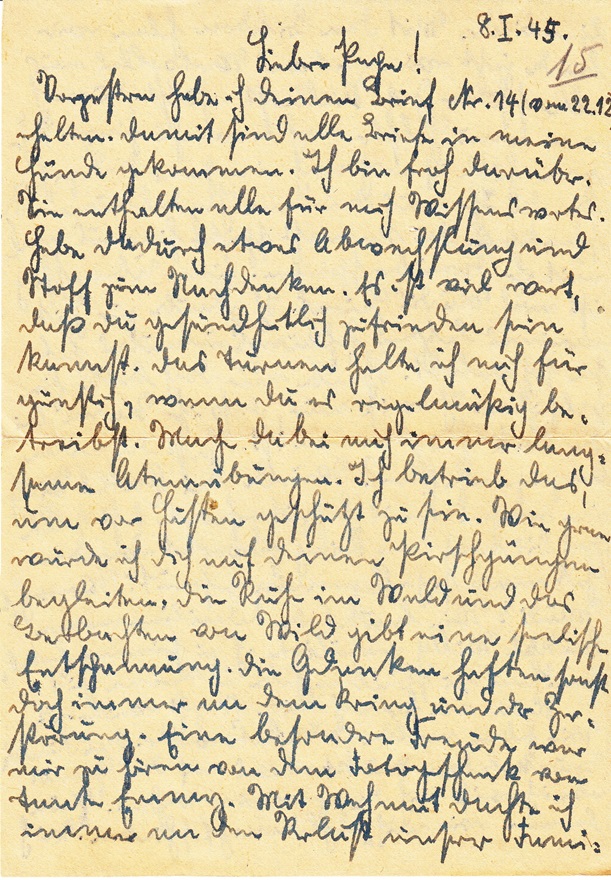 8.I.45.
15
Lieber Papa!
Vorgestern habe ich deinen Brief Nr. 14 (vom 22.12
erhalten. Damit sind alle Briefe in meine
Hände gekommen. Ich bin froh darüber.
Sie enthalten alle für mich Wissenswertes.
Habe dadurch etwas Abwechslung und
Stoff zum Nachdenken. Es ist viel wert,
daß du gesundheitlich zufrieden sein
kannst. Das Turnen halte ich auch für
günstig, wenn du es regelmäßig be-
treibst. Mache dabei auch immer lang-
same Atemübungen. Ich betrieb das,
um vor Husten geschützt zu sein. Wie gerne
würde ich dich auf deinen Pirschgängen
begleiten. Die Ruhe im Wald und das
Beobachten von Wild gibt eine seelische
Entspannung. Die Gedanken haften sonst
doch immer an dem Krieg und der Zer-
störung. Eine besondere Freude war
mir zu hören von dem Fotogeschenk von
Tante Emmy. Mit Wehmut dachte ich
immer an den Verlust unser Fami-